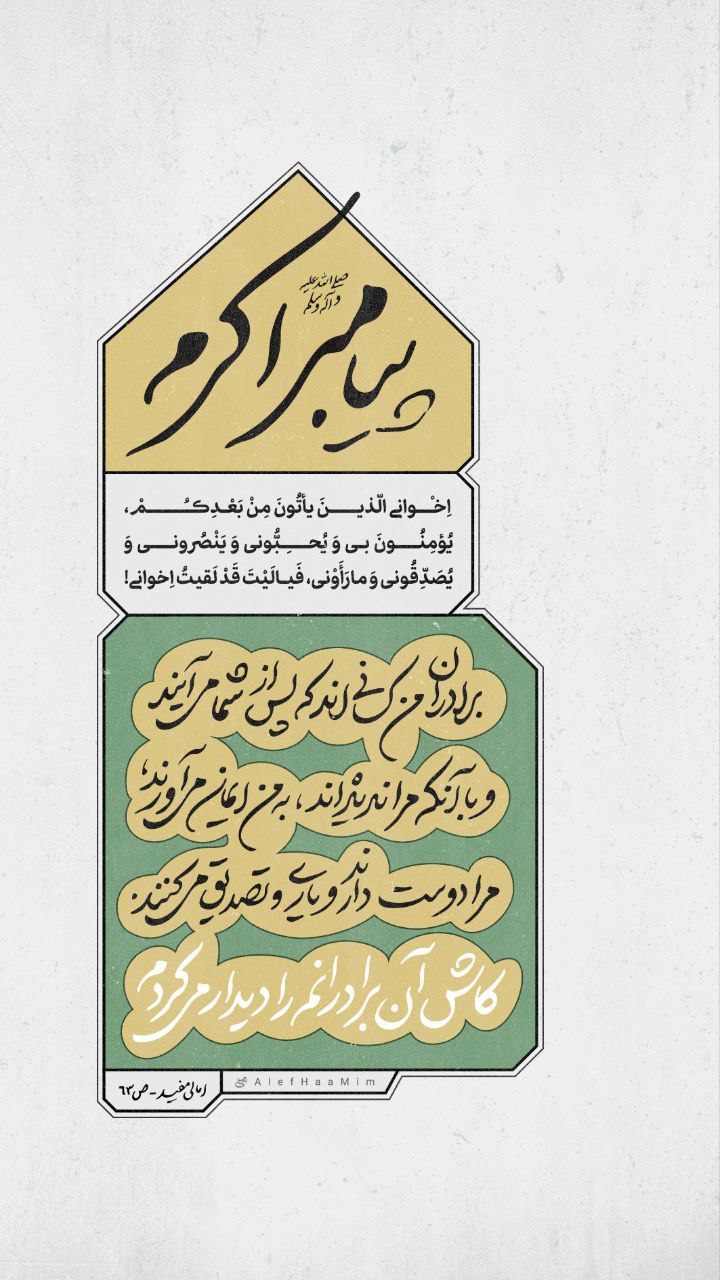 پیامبر اکرم
صلی‌الله علیه
و آله و سلم
اِخْوانِیَ الّذینَ یأتُونَ مِنْ بَعْدِکُمْ،
یُؤمِنُونَ بی وَ یُحِبُّونی وَ یَنْصُرونی وَ
یُصَدِّقُونی وَ مارَأَوْنی، فَیالَیْتَ قَدْ لَقیتُ اِخوانی!
برادران من کسانی‌اند که پس از شما می‌آیند
و با آنکه مرا ندیده‌اند، به من ایمان می‌آورند،
مرا دوست دارند و یاری و تصدیق می‌کنند.
کاش آن برادرانم را دیدار می‌کردم
امالی مفید - ص۶۳
AlefHaaMim